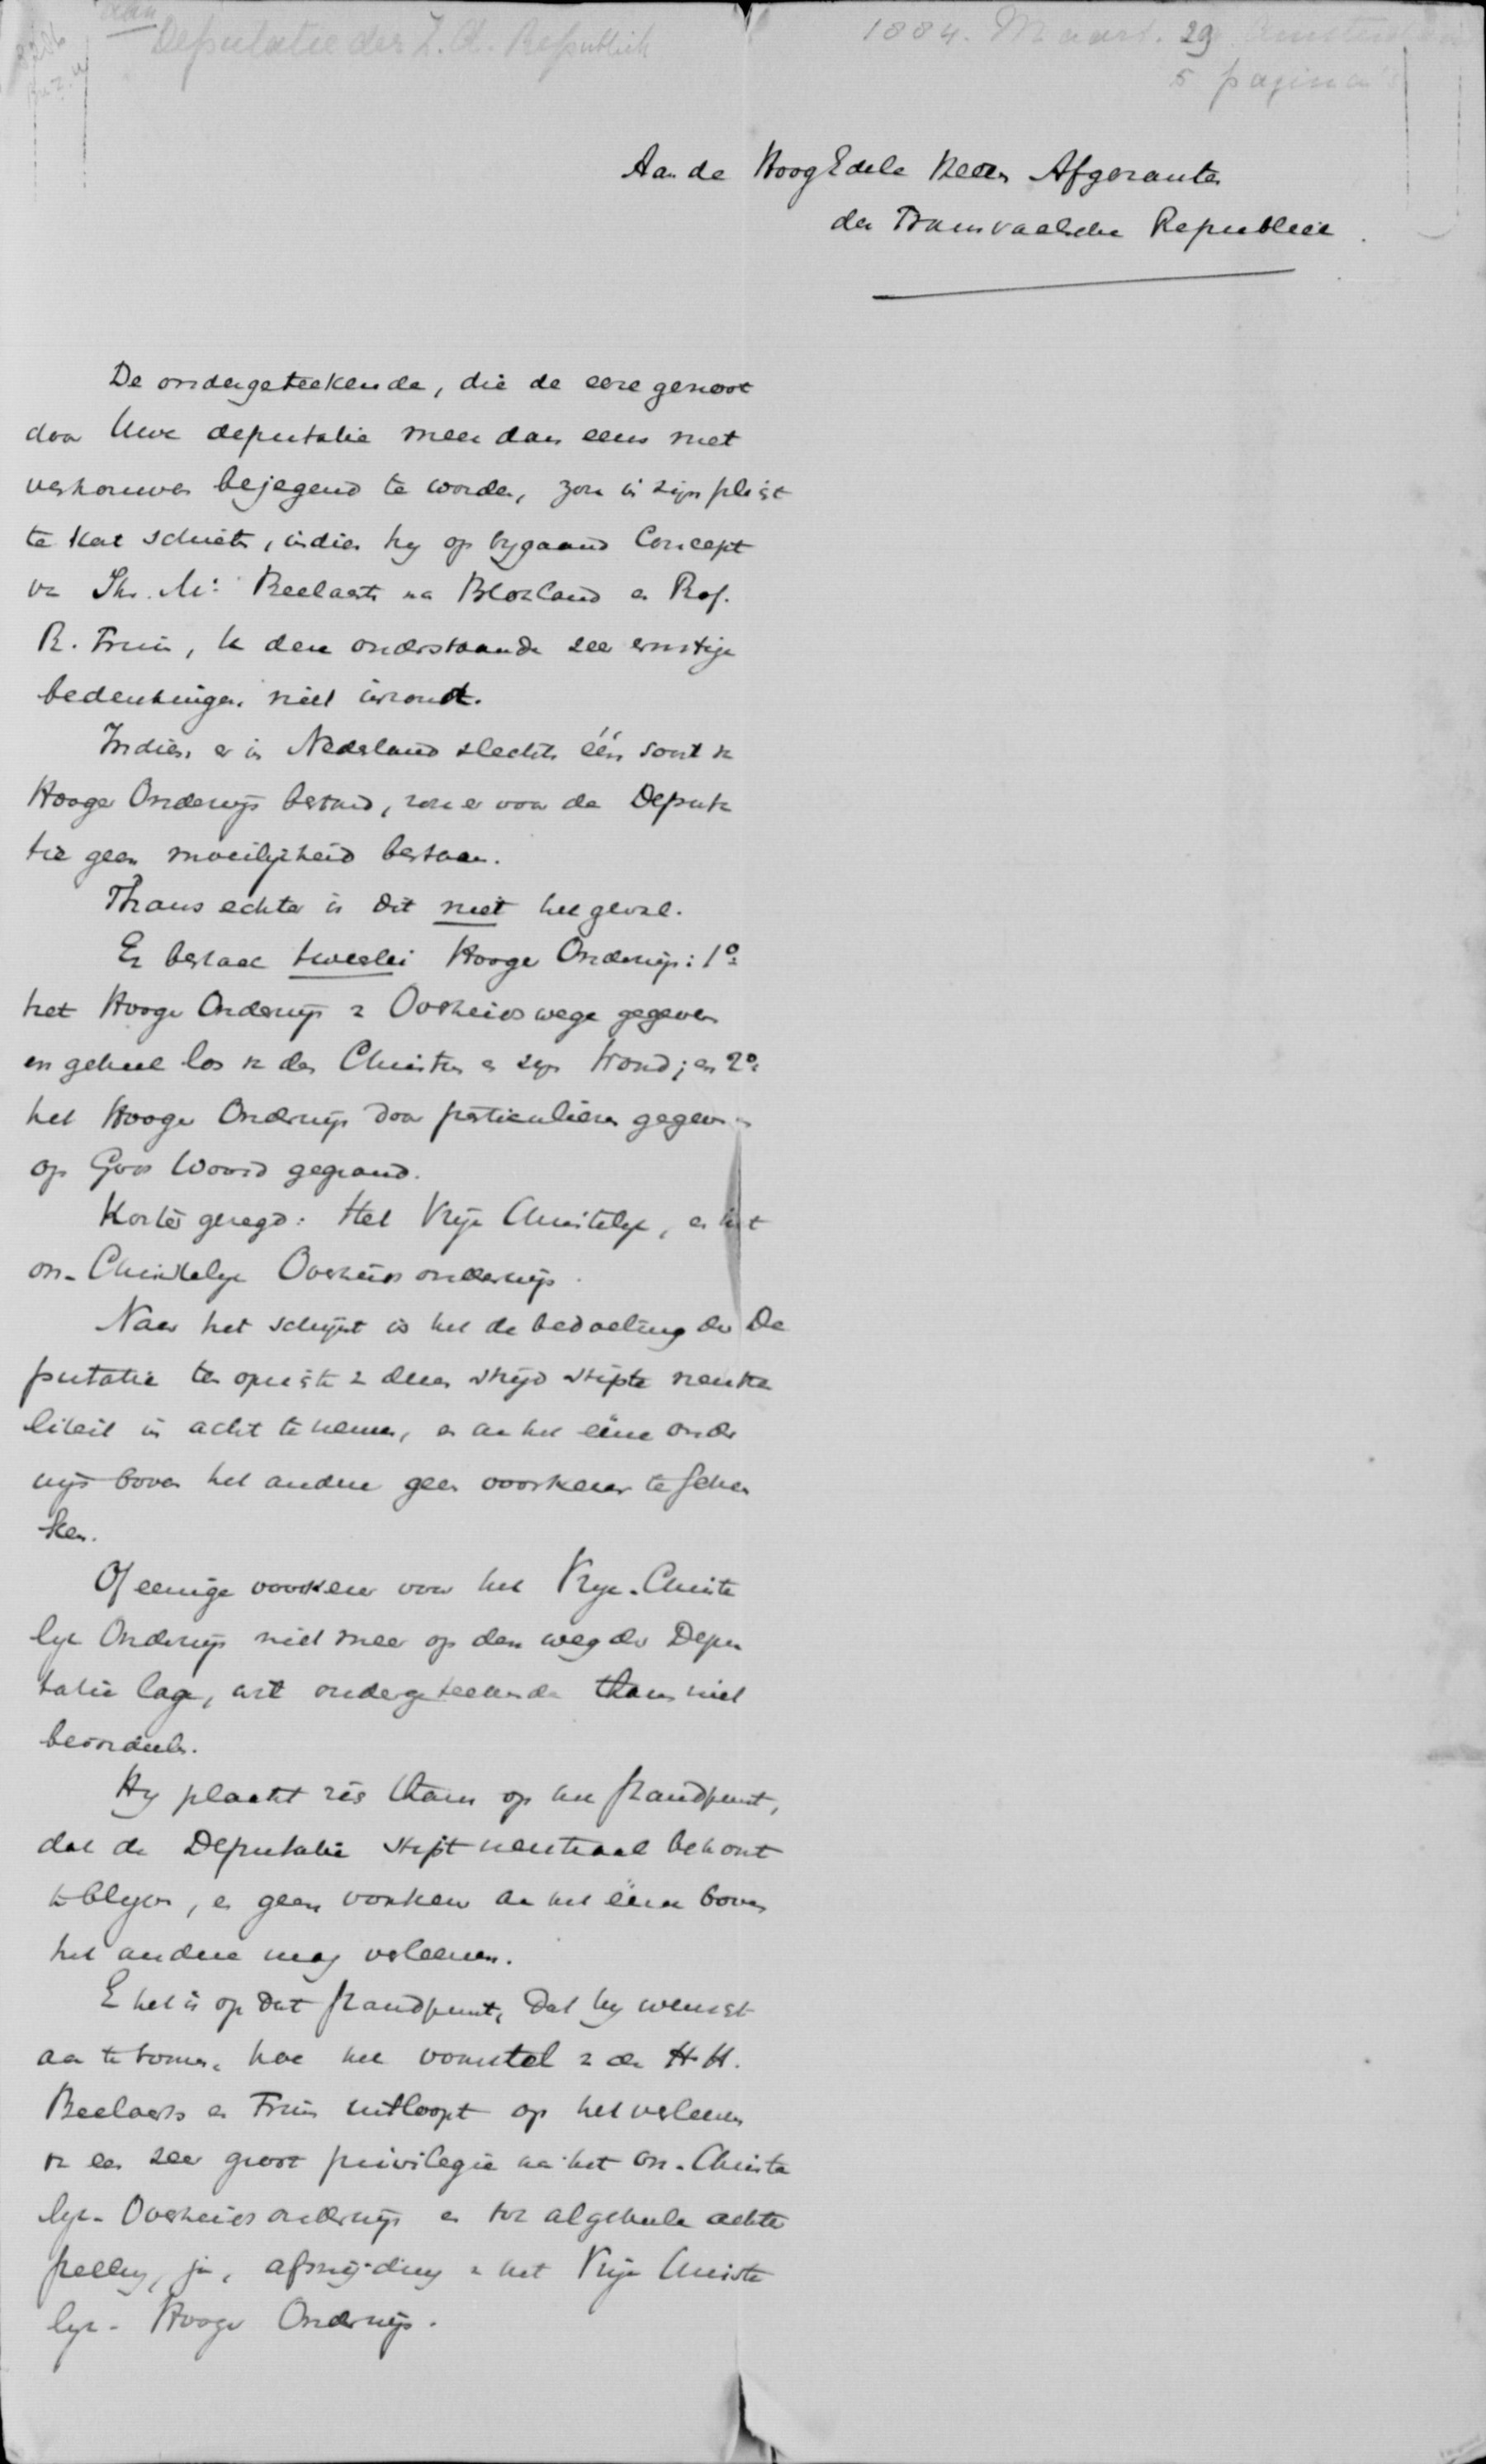 aan
Deputatie der Z. A. Republiek
1884. Maart. 29 Amsterdam
5 pagina's
Aan de HoogEdele Heeren Afgezanten
der Transvaalsche Republiek.
De ondergeteekende, die de eere genoot
door Uwe deputatie meer dan eens met
vertrouwen bejegend te worden, zou in zijn pligt
te kort schieten, indien hy op bygaand Concept
van Jhr. Mr. Beelaerts van Blokland en Prof.
R. Fruin, te dezen onderstaande zeer ernstige
bedenkingen niet inzond.
Indien er in Nederland slechts één soort van
Hooger Onderwijs bestond, zou er voor de Deputa
tie geen moeilijkheid bestaan.
Thans echter is dit niet het geval.
Er bestaat tweeërlei Hooger Onderwijs: 1o
het Hooger Onderwijs van Overheidswege gegeven
en geheel los van den Christus en zijn Woord; en 2o
het Hooger Onderwijs door particulieren gegeven en
op Gods Woord gegrond.
Korter gezegd: Het Vrije Christelijke, en het
on-Christelijke Overheidsonderwijs.
Naar het schijnt is het de bedoeling der De
putatie ten opzichte van dezen strijd stipte neutra
liteit in acht te nemen, en aan het eene onder
wijs boven het andere geen voorkeur te schen
ken.
Of eenige voorkeur voor het Vrye-Christe
lyk Onderwijs niet meer op den weg der Depu
tatie lage, wil ondergeteekende thans niet
beoordeelen.
Hy plaatst zich thans op het standpunt,
dat de Deputatie stipt neutraal behoort
te blyven, en geen voorkeur aan het eene boven
het andere mag verleenen.
En het is op dat standpunt, dat hy wenscht
aan te toonen, hoe het voorstel van de HH.
Beelaerts en Fruin uitloopt op het verleenen
van een zeer groot privilegie aan het on-Christe
lyk-Overheidsonderwijs en tot algeheele achter
stelling, ja, afsnijding van het Vrije Christe
lyk-Hooger Onderwijs.